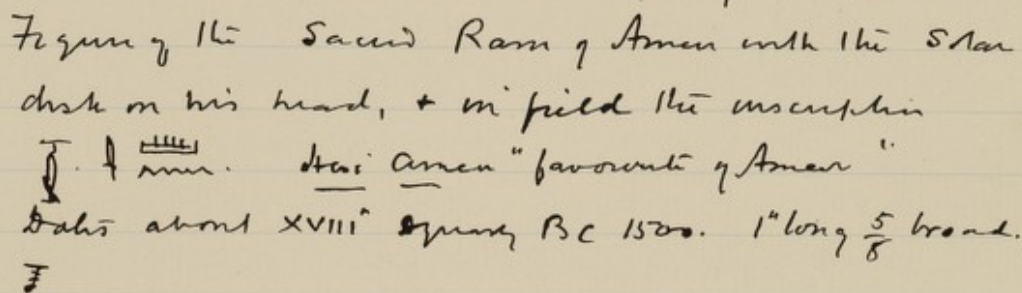 Figure of the Sacred Ram of Amen with the Solar
disk on his head, + in field the inscription
𓎿. 𓇋𓏠𓈖. Hesi Amen "favourite of Amen".
Dates about XVIII" dynasty BC 1500. 1" long 5/8 broad.